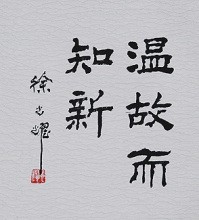 温故而
知新
徐光耀